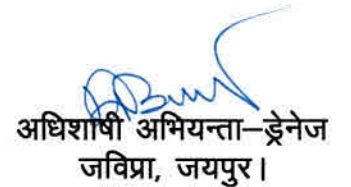 अधिशाषी अभियन्ता–ड्रेनेज
जविप्रा, जयपुर।